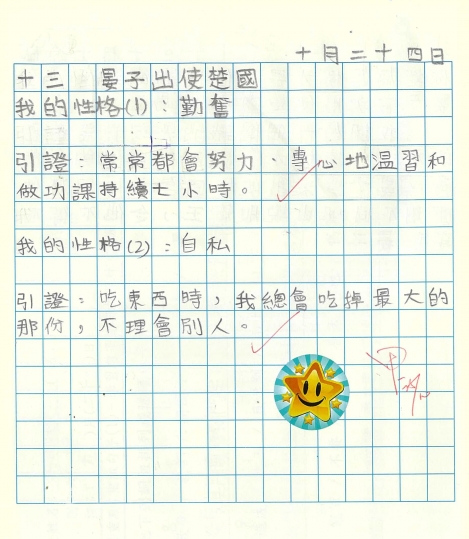 十月二十四日
十三　晏子出使楚國
我的性格(1)：勤奮
引證：常常都會努力、專心地温習和
做功課持續七小時。
我的性格(2)：自私
引證：吃東西時，我總會吃掉最大的
那份，不理會別人。
甲